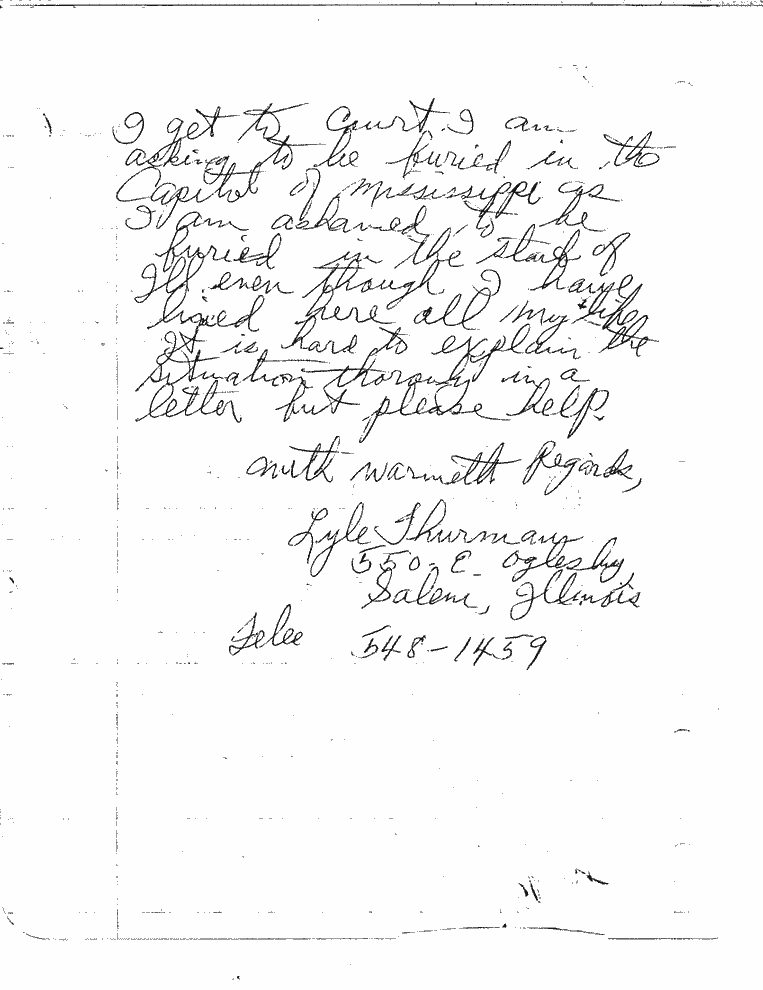 I get to Court. I am
asking to be buried in the
Capitol of Mississippi as
I am ashamed to be
buried in the state of
Ill. even though I have
lived here all my life.
It is hard to explain the
situation thoroly in a
letter but please help.
with warmeth Regards,
Lyle Thurman
550. E. Oglesby,
Salem, Illinois
Tele 548-1459